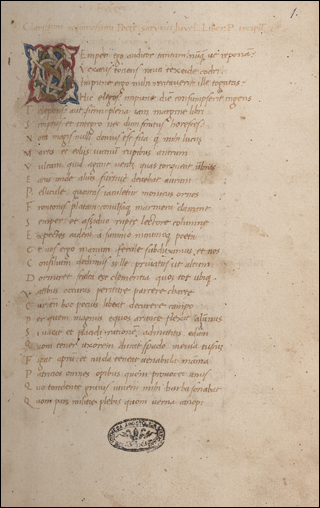 Semper ego auditor tantum nunq̃ ne reponam
Vexatus totiens rauci theseide codri
Impune ergo mihi recitaverit ille togatas
Hic elegos impune diem consumpserit ingens
Telephus aut summi plena iam margine libri
Scriptus et in tergo nec dum finitus horestes
Nota magis nulli domus est sua q̃ mihi lucus
Martis et eolus vicinum rupibus antrum
Vulcani quid agant venti quas torqueat umbras
Eacus unde alius furtive devehat aurum
Pellicule quantas iaculetur monicus ornos
Frontonis platani convulsaq marmora clamant
Semper et assiduo rupte lectore columne
Expectes eadem a summo minimoq poeta
Et nos ergo manum ferule subduximus et nos
Consilium dedimus sylle privatus ut altum
Dormiret stulta est clementia quom tot ubiq
Vatibus occurras periture parcere charte
Cur tamen hoc potius libeat decurrere campo
Per quem magnus equos aurunce flexit alumnus
Si vacat et placidi rationem admittitis edam
Quom tener uxorem ducat spado mevia tuscum
Figat aprum et nuda teneat venabula mama
Patricios omnes opibus quom provocet unus
Quo tondente gravis iuveni mihi barba sonabat
Quom pars niliace plebis quom verna canopi